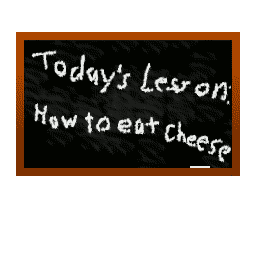 Today's Lesson:
How to eat cheese